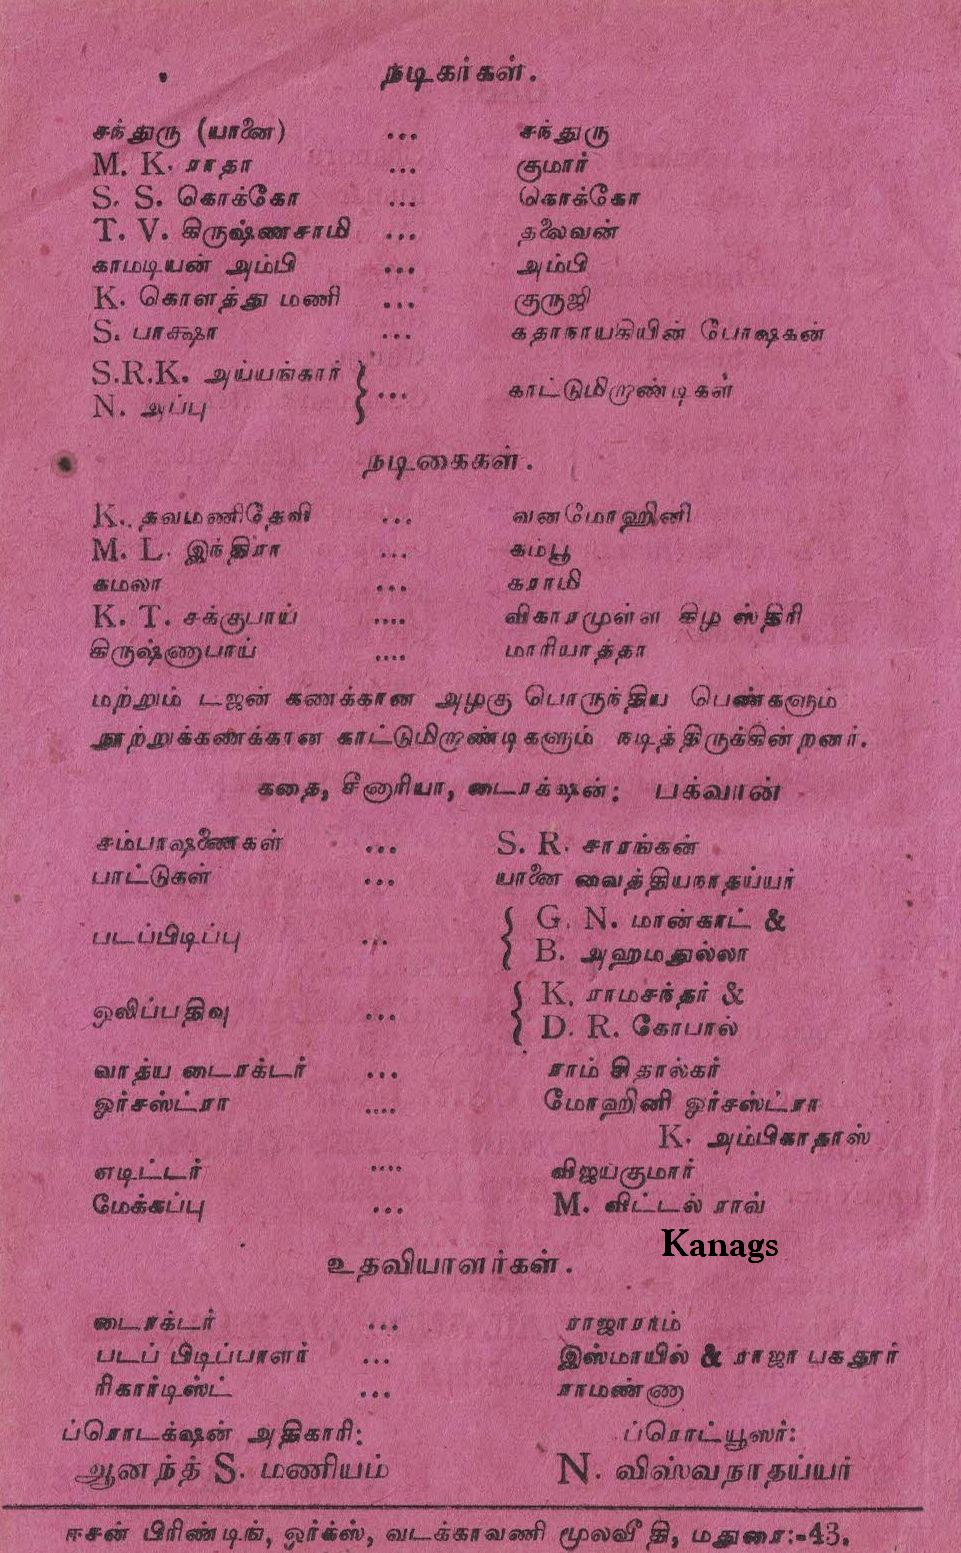 நடிகர்கள்.
சந்துரு (யானை) ... சந்துரு
M. K. ராதா ... குமார்
S. S. கொக்கோ ... கொக்கோ
T. V. கிருஷ்ணசாமி ... தலைவன்
காமடியன் அம்பி ... அம்பி
K. கொளத்து மணி ... குருஜி
S. பாக்ஷா ... கதாநாயகியின் போஷகன்
S.R.K. அய்யங்கார்
N. அப்பு } ... காட்டுமிறாண்டிகள்
நடிகைகள்.
K. தவமணிதேவி ... வனமோஹினி
M. L. இந்திரா ... கம்பூ
கமலா ... கராமி
K. T. சக்குபாய் .... விகாரமுள்ள கிழ ஸ்திரி
கிருஷ்ணாபாய் .... மாரியாத்தா
மற்றும் டஜன் கணக்கான அழகு பொருந்திய பெண்களும்
நூற்றுக்கணக்கான காட்டுமிறாண்டிகளும் நடித்திருக்கின்றனர்.
கதை, சீனாரியா, டைரக்ஷன்: பக்வான்
சம்பாஷணைகள் ... S. R. சாரங்கன்
பாட்டுகள் ... யானை வைத்தியநாதய்யர்
படப்பிடிப்பு ... { G. N. மான்காட் &
B. அஹமதுல்லா
ஒலிப்பதிவு ... { K. ராமசந்தர் &
D. R. கோபால்
வாத்ய டைரக்டர் ... ராம் சிதால்கர்
ஓர்சஸ்ட்ரா .... மோஹினி ஓர்சஸ்ட்ரா
K. அம்பிகாதாஸ்
எடிட்டர் .... விஜய்குமார்
மேக்கப்பு ... M. விட்டல் ராவ்
Kanags
உதவியாளர்கள்.
டைரக்டர் ... ராஜாராம்
படப் பிடிப்பாளர் ... இஸ்மாயில் & ராஜா பகதூர்
ரிகார்டிஸ்ட் ... ராமண்ணா
ப்ரொடக்ஷன் அதிகாரி: ப்ரொட்யூஸர்:
ஆனந்த் S. மணியம் N. விஸ்வநாதய்யர்
ஈசன் பிரிண்டிங், ஒர்க்ஸ், வடக்காவணி மூலவீதி, மதுரை:-43.